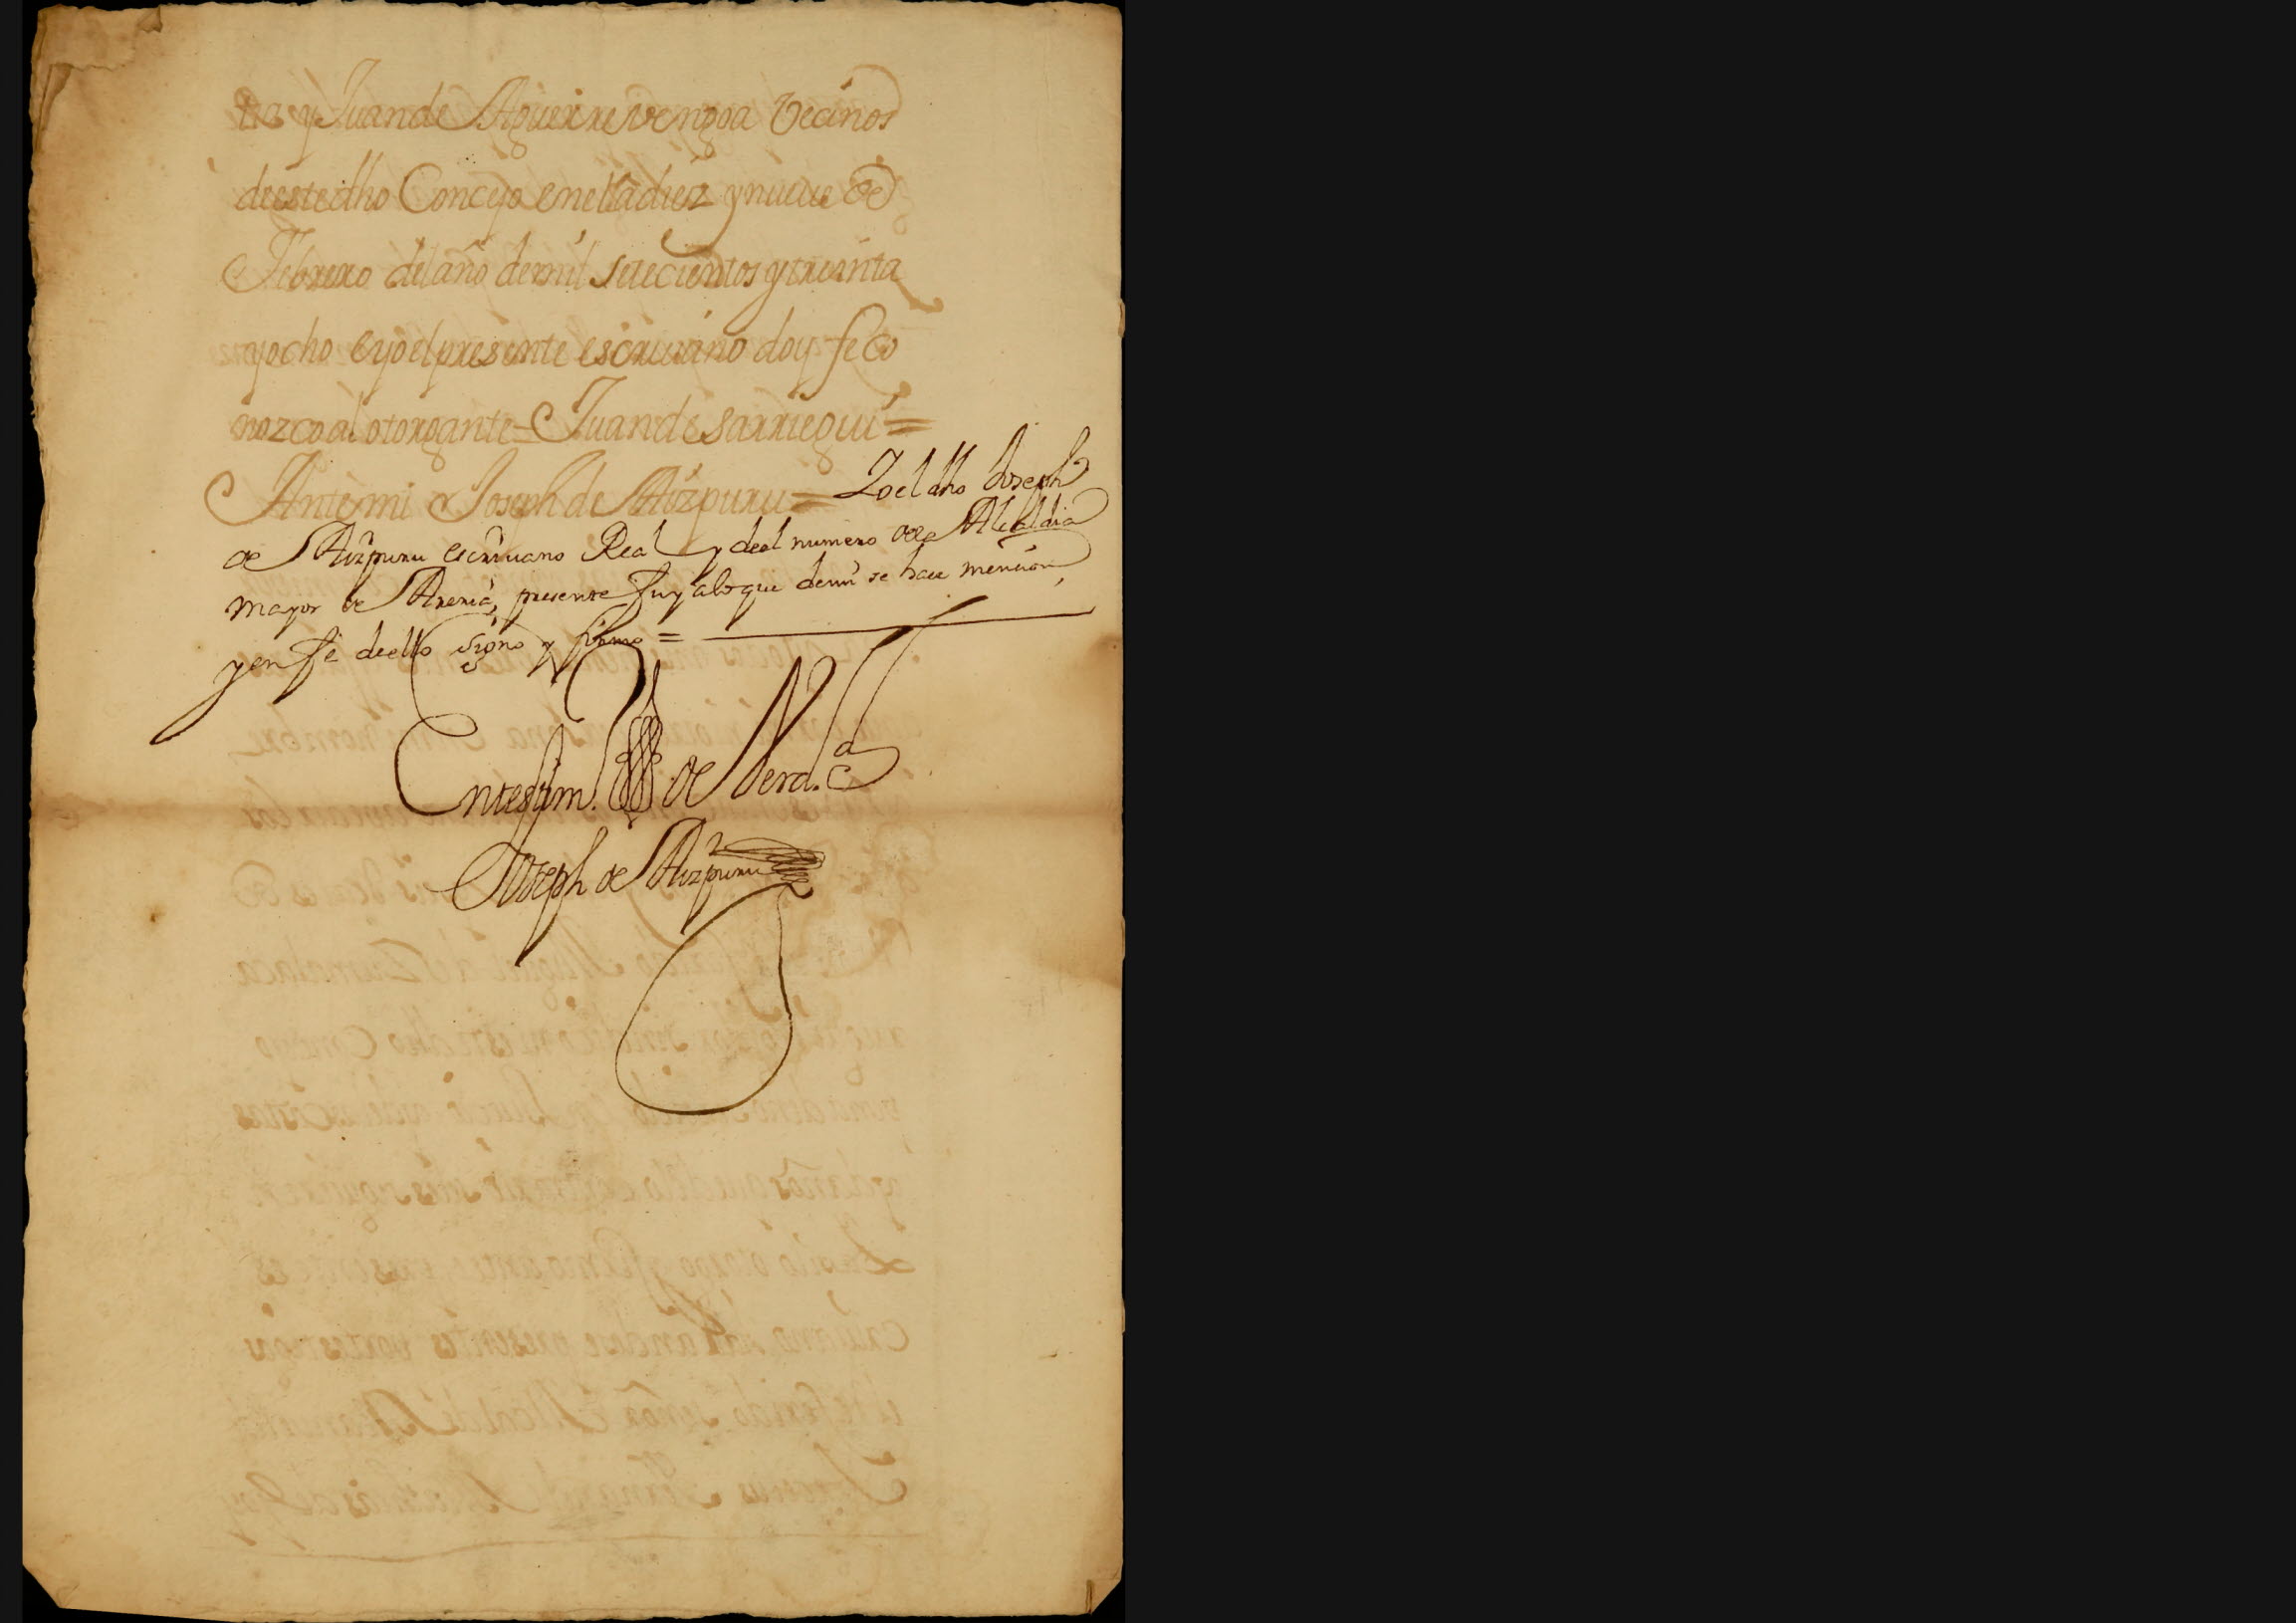 y Juan de Aguirre vengoa Vecinos
de este dho Concejo en el a diez y nueue de
Febrero del año de mil setecientos y treinta
y ocho e yo el presente escriuano doy fe co
nozco al otorgante = Juan de Sarriegui =
Ante mi Joseph de Aizpuru = Yo el dho Joseph
de Aizpuru escriuano Real y del numero de la Alcaldia
mayor de Areria, presente fuy a lo que de mi se hace mencion,
y en fe de ello signo y firmo =
En testim.º de Verd.
Joseph de Aizpuru